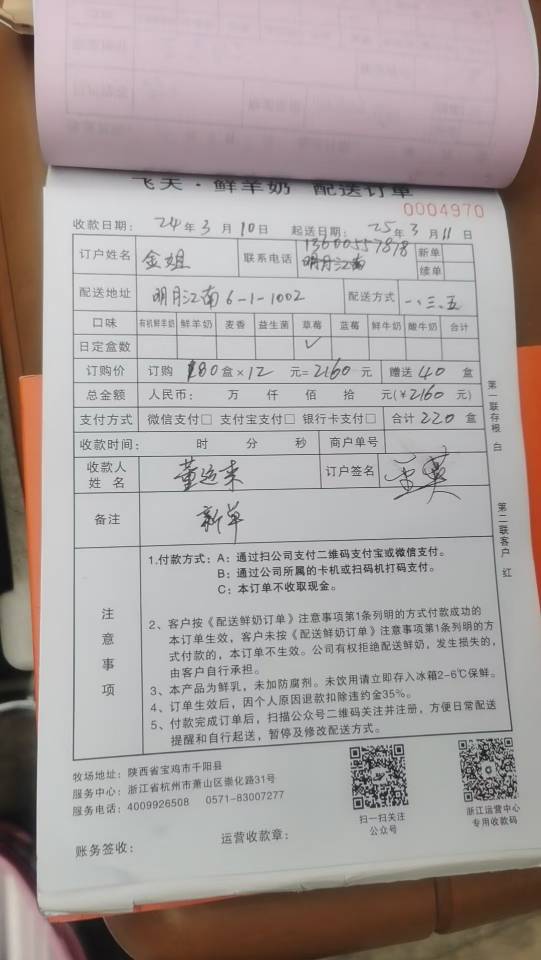 飞天·鲜羊奶 配送订单
0004970
收款日期：24年3月10日 起送日期：25年3月11日
订户姓名 金姐 联系电话 13600557878 明月江南 新单
续单
配送地址 明月江南6-1-1002 配送方式 一、三、五
口味 有机鲜羊奶 鲜羊奶 麦香 益生菌 草莓 蓝莓 鲜牛奶 酸牛奶 合计
日定盒数 ✓
订购价 订购 180盒×12元=2160元 赠送40盒
总金额 人民币： 万 仟 佰 拾 元(￥2160元)
支付方式 微信支付□ 支付宝支付□ 银行卡支付□ 合计220盒
收款时间： 时 分 秒 商户单号
收款人姓名 董运来 订户签名
备注 新单
第一联存根 白
第二联客户 红
注意事项
1.付款方式：A：通过扫公司支付二维码支付宝或微信支付。
B：通过公司所属的卡机或扫码机打码支付。
C：本订单不收取现金。
2、客户按《配送鲜奶订单》注意事项第1条列明的方式付款成功的
本订单生效，客户未按《配送鲜奶订单》注意事项第1条列明的方
式付款的，本订单不生效。公司有权拒绝配送鲜奶，发生损失的，
由客户自行承担。
3、本产品为鲜乳，未加防腐剂。未饮用请立即存入冰箱2-6℃保鲜。
4、订单生效后，因个人原因退款扣除违约金35%。
5、付款完成订单后，扫描公众号二维码关注并注册，方便日常配送
提醒和自行起送，暂停及修改配送方式。
牧场地址：陕西省宝鸡市千阳县
服务中心：浙江省杭州市萧山区崇化路31号
服务电话：4009926508 0571-83007277
扫一扫关注
公众号
浙江运营中心
专用收款码
账务签收： 运营收款章：